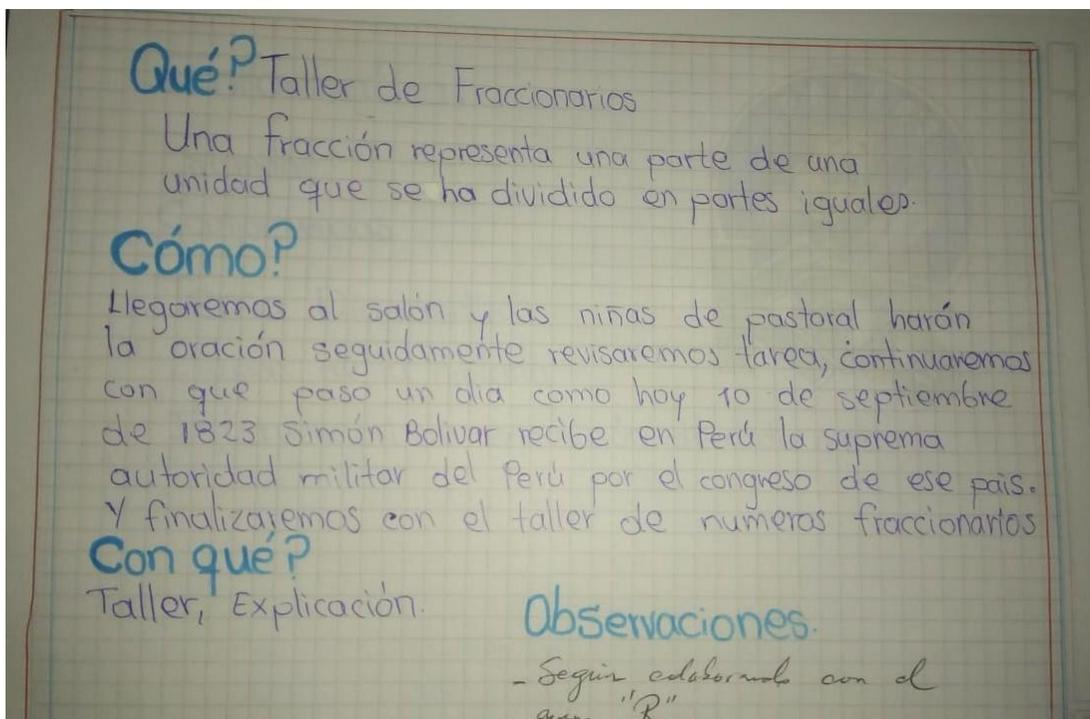 Qué? Taller de Fraccionarios
Una fracción representa una parte de una
unidad que se ha dividido en partes iguales.
Cómo?
Llegaremos al salón y las niñas de pastoral harán
la oración seguidamente revisaremos tarea, continuaremos
con que paso un dia como hoy 10 de septiembre
de 1823 Simón Bolivar recibe en Perú la suprema
autoridad militar del Perú por el congreso de ese pais.
Y finalizaremos con el taller de numeros fraccionarios
Con qué?
Taller, Explicación.
Observaciones.
- Seguir colaborando con el
"R"